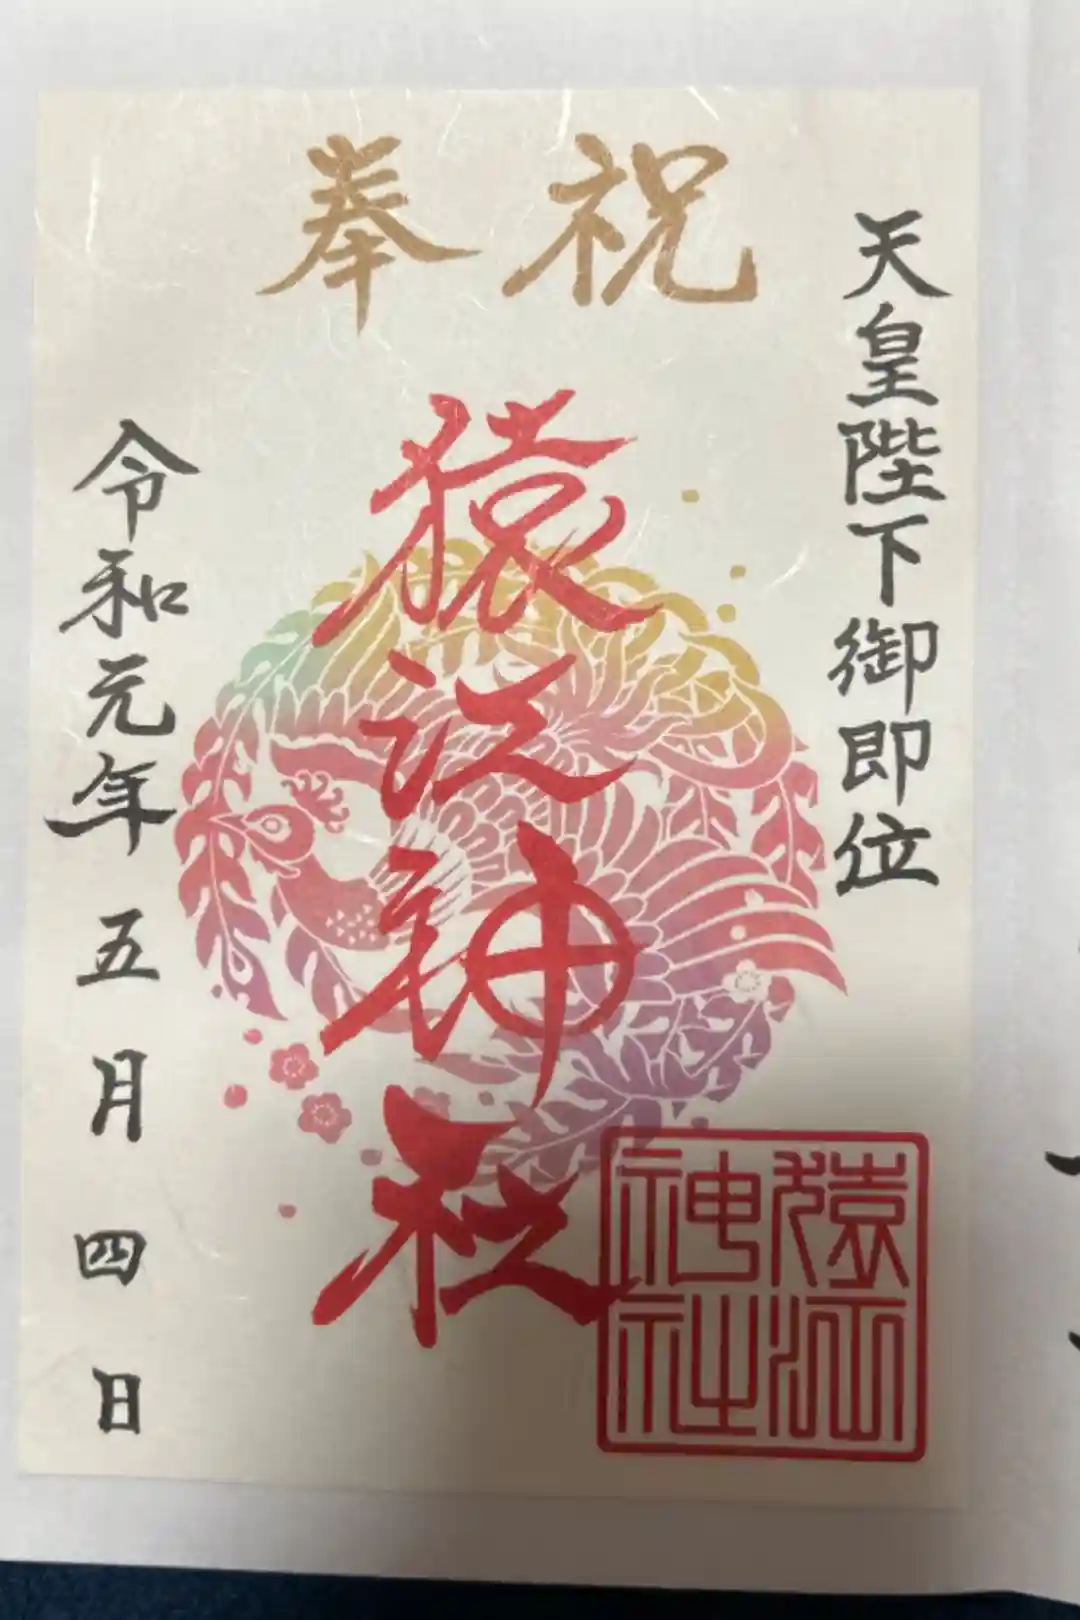 奉祝
天皇陛下御即位
猿江神社
令和元年五月四日
猿江
神社